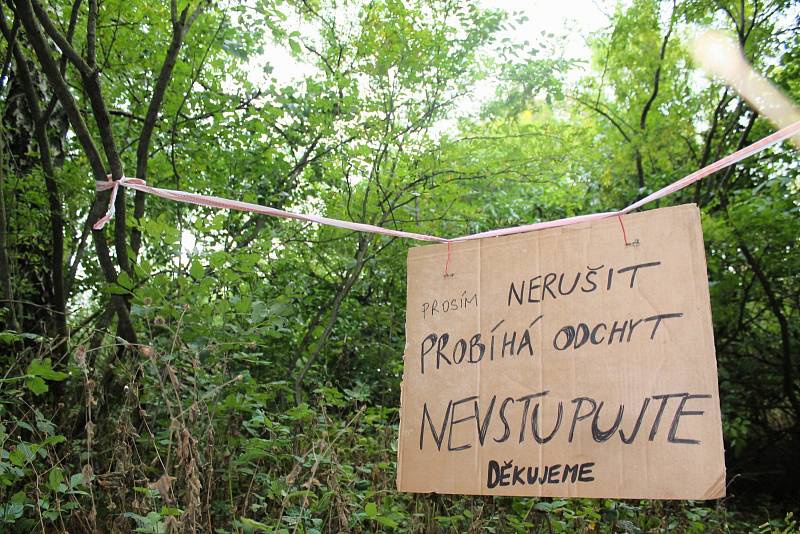 PROSÍM NERUŠIT
PROBÍHÁ ODCHYT
NEVSTUPUJTE
DĚKUJEME